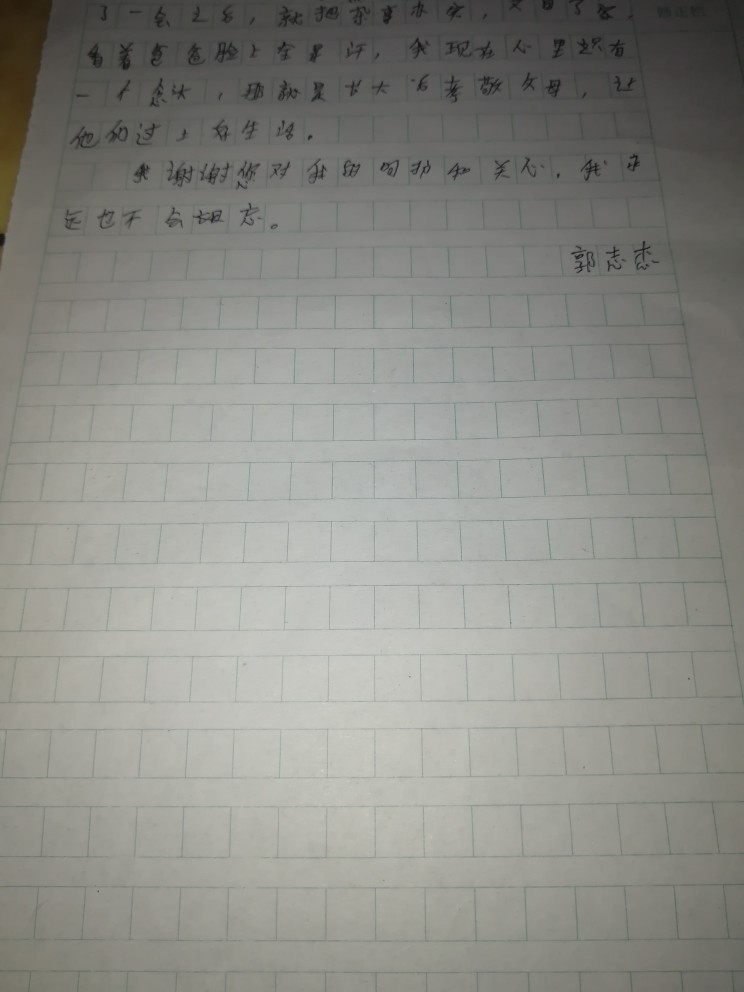 了一会之后，就把杂事办完，又回了家，
看着爸爸脸上全是汗，我现在心里只有
一个念头，那就是长大后孝敬父母，让
他们过上好生活。
我谢谢您对我的呵护和关心，我永
远也不会忘。
郭志杰